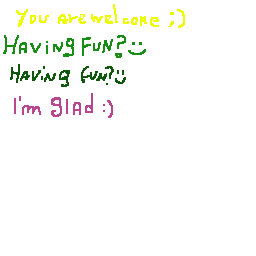 You are welcome ;)
Having Fun? :)
Having Fun? :)
I'm glad :)